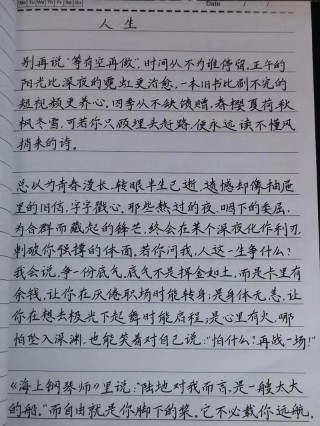 Mo Tu We Th Fr Sa Su
Date
人生
别再说“等有空再做”，时间从不为谁停留，正午的
阳光比深夜的霓虹更治愈，一本旧书比刷不完的
短视频更养心。四季从不缺馈赠，春樱夏荷秋
枫冬雪，可若你只顾埋头赶路，便永远读不懂风
捎来的诗。
总以为青春漫长，转眼半生已逝，遗憾却像抽屉
里的旧信，字字戳心。那些熬过的夜、咽下的委屈、
为合群而藏起的锋芒，终会在某个深夜化作利刃，
刺破你强撑的体面。若你问我，人这一生争什么？
我会说，争一份底气，底气不是挥金如土，而是卡里有
余钱，让你在厌倦职场时能转身；是身体无恙，让
你在想去极光下起舞时能启程；是心里有火，哪
怕坠入深渊，也能笑着对自己说：“怕什么？再战一场！”
《海上钢琴师》里说：“陆地对我而言，是一艘太大
的船。”而自由就是你脚下的桨。它不必载你远航，